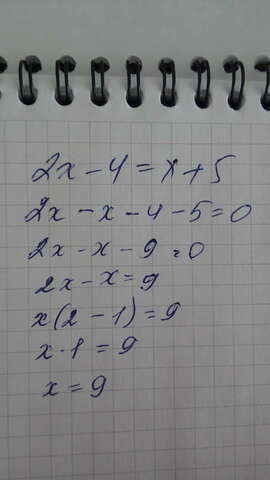 2x - 4 = x + 5
2x - x - 4 - 5 = 0
2x - x - 9 = 0
2x - x = 9
x(2 - 1) = 9
x · 1 = 9
x = 9